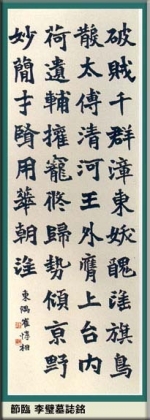 破賊千群漳東妖醜滛旗鳥
散太傅清河王外膺上台内
荷遺輔擁寵脩歸勢傾京野
妙簡才用華朝淮
東隅崔
節臨 李璧墓誌銘